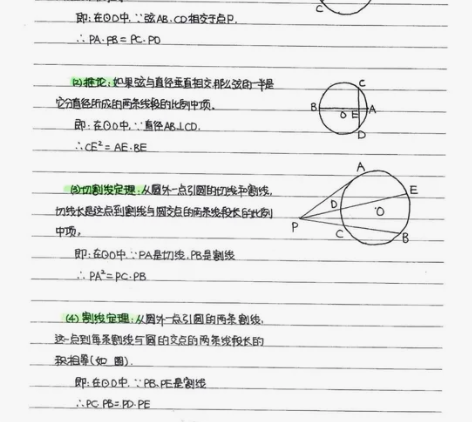 C
即:在⊙O中,∵弦AB、CD相交于点P.
∴PA·PB=PC·PD
(2)推论:如果弦与直径垂直相交,那么弦的一半是
它分直径所成的两条线段的比例中项。
即:在⊙O中,∵直径AB⊥CD.
∴CE²=AE·BE
C
B
O
E
A
D
(3)切割线定理:从圆外一点引圆的切线和割线,
切线长是这点到割线与圆交点的两条线段长的比例
中项,
即:在⊙O中,∵PA是切线,PB是割线
∴PA²=PC·PB
A
E
D
O
P
C
B
(4)割线定理:从圆外一点引圆的两条割线,
这一点到每条割线与圆的交点的两条线段长的
积相等(如图).
即:在⊙O中,∵PB、PE是割线
∴PC·PB=PD·PE